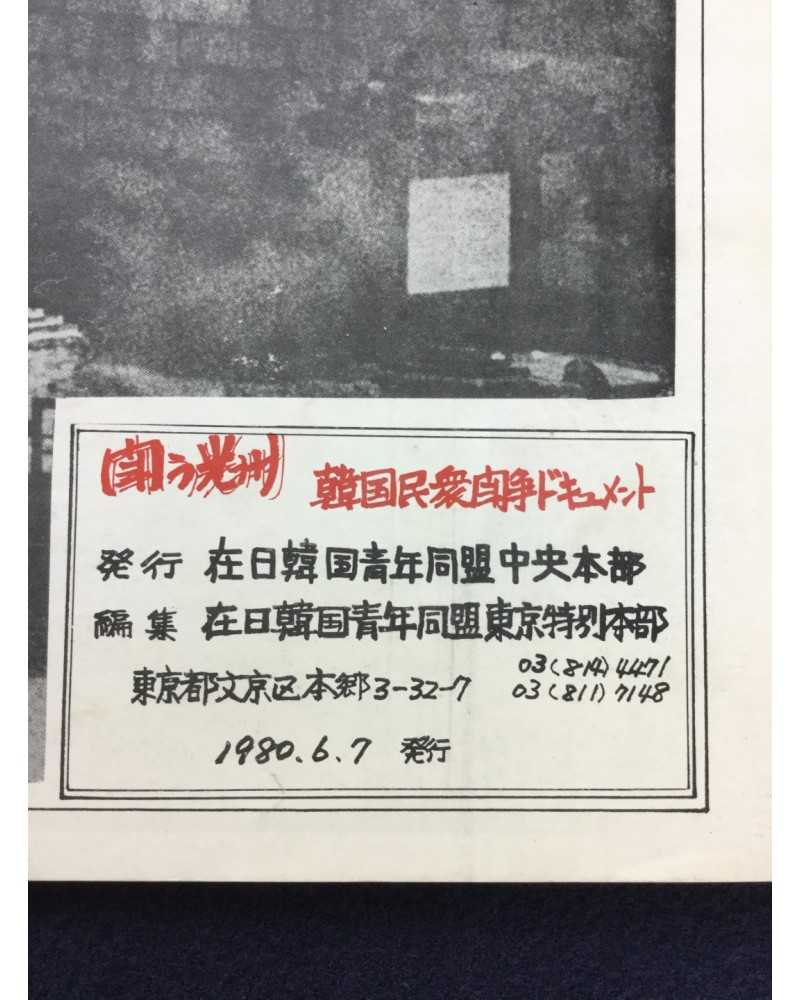 闘う光州
韓国民衆闘争ドキュメント
発行 在日韓国青年同盟中央本部
編集 在日韓国青年同盟東京特別本部
東京都文京区本郷3-32-7
03(814)4471
03(811)7148
1980.6.7 発行